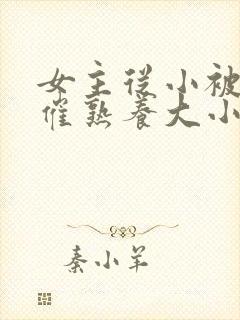 女主从小被
催熟养大小
秦小羊